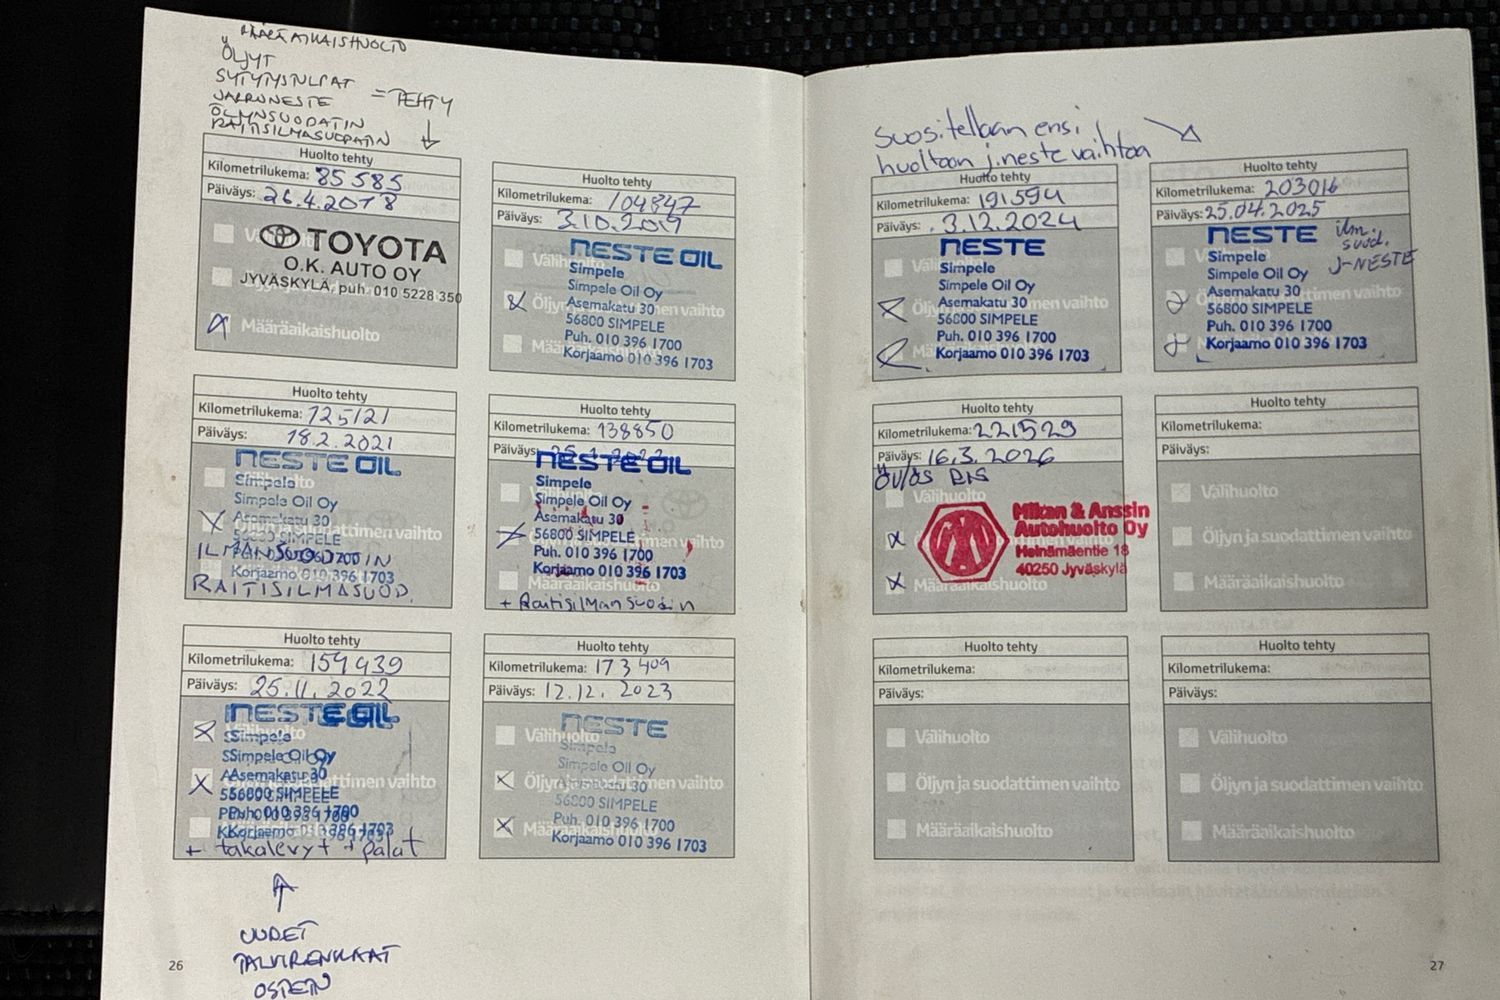 MÄÄRÄAIKAISHUOLTO
ÖLJYT
SYTYTYSTULPAT
JARRUNESTE
= TEHTY
ÖLJYNSUODATIN
RAITISILMASUODATIN
Huolto tehty
Kilometrilukema: 85 585
Päiväys: 26.4.2018
TOYOTA
O.K. AUTO OY
JYVÄSKYLÄ, puh. 010 5228 350
Määräaikaishuolto
Huolto tehty
Kilometrilukema: 104847
Päiväys: 3.10.2019
NESTE OIL
Välihuolto
Simpele
Simpele Oil Oy
Asemakatu 30
Öljyn ja suodattimen vaihto
56800 SIMPELE
Puh. 010 396 1700
Korjaamo 010 396 1703
Huolto tehty
Kilometrilukema: 125121
Päiväys: 18.2.2021
NESTE OIL
Simpele
Simpele Oil Oy
Asemakatu 30
Öljyn ja suodattimen vaihto
56800 SIMPELE
ILMANSUODATIN
Korjaamo 010 396 1703
RAITISILMASUOD.
Huolto tehty
Kilometrilukema: 138850
Päiväys:
NESTE OIL
Simpele
Simpele Oil Oy
Asemakatu 30
56800 SIMPELE
Puh. 010 396 1700
Korjaamo 010 396 1703
Määräaikaishuolto
+ Raitisilman suodin
Huolto tehty
Kilometrilukema: 159439
Päiväys: 25.11.2022
NESTE OIL
Simpele
Simpele Oil Oy
Asemakatu 30
56800 SIMPELE
Puh. 010 396 1700
Korjaamo 010 396 1703
+ takalevyt + palat
UUDET
TALVIRENKAAT
OSTETTU
Huolto tehty
Kilometrilukema: 173409
Päiväys: 12.12.2023
NESTE
Välihuolto
Simpele
Simpele Oil Oy
Asemakatu 30
Öljyn ja suodattimen vaihto
56800 SIMPELE
Puh. 010 396 1700
Korjaamo 010 396 1703
26
suositellaan ensi
huoltoon j.neste vaihtoa
Huolto tehty
Kilometrilukema: 191594
Päiväys: 3.12.2024
NESTE
Simpele
Simpele Oil Oy
Asemakatu 30
56800 SIMPELE
Puh. 010 396 1700
Korjaamo 010 396 1703
Huolto tehty
Kilometrilukema: 203016
Päiväys: 25.04.2025
NESTE
ilm.
suod.
J-NESTE
Simpele
Simpele Oil Oy
Asemakatu 30
56800 SIMPELE
Puh. 010 396 1700
Korjaamo 010 396 1703
Huolto tehty
Kilometrilukema: 221529
Päiväys: 16.3.2026
Välihuolto
Mikan & Anssin
Autohuolto Oy
Heinämäentie 18
40250 Jyväskylä
Määräaikaishuolto
Huolto tehty
Kilometrilukema:
Päiväys:
Välihuolto
Öljyn ja suodattimen vaihto
Määräaikaishuolto
Huolto tehty
Kilometrilukema:
Päiväys:
Välihuolto
Öljyn ja suodattimen vaihto
Määräaikaishuolto
Huolto tehty
Kilometrilukema:
Päiväys:
Välihuolto
Öljyn ja suodattimen vaihto
Määräaikaishuolto
27